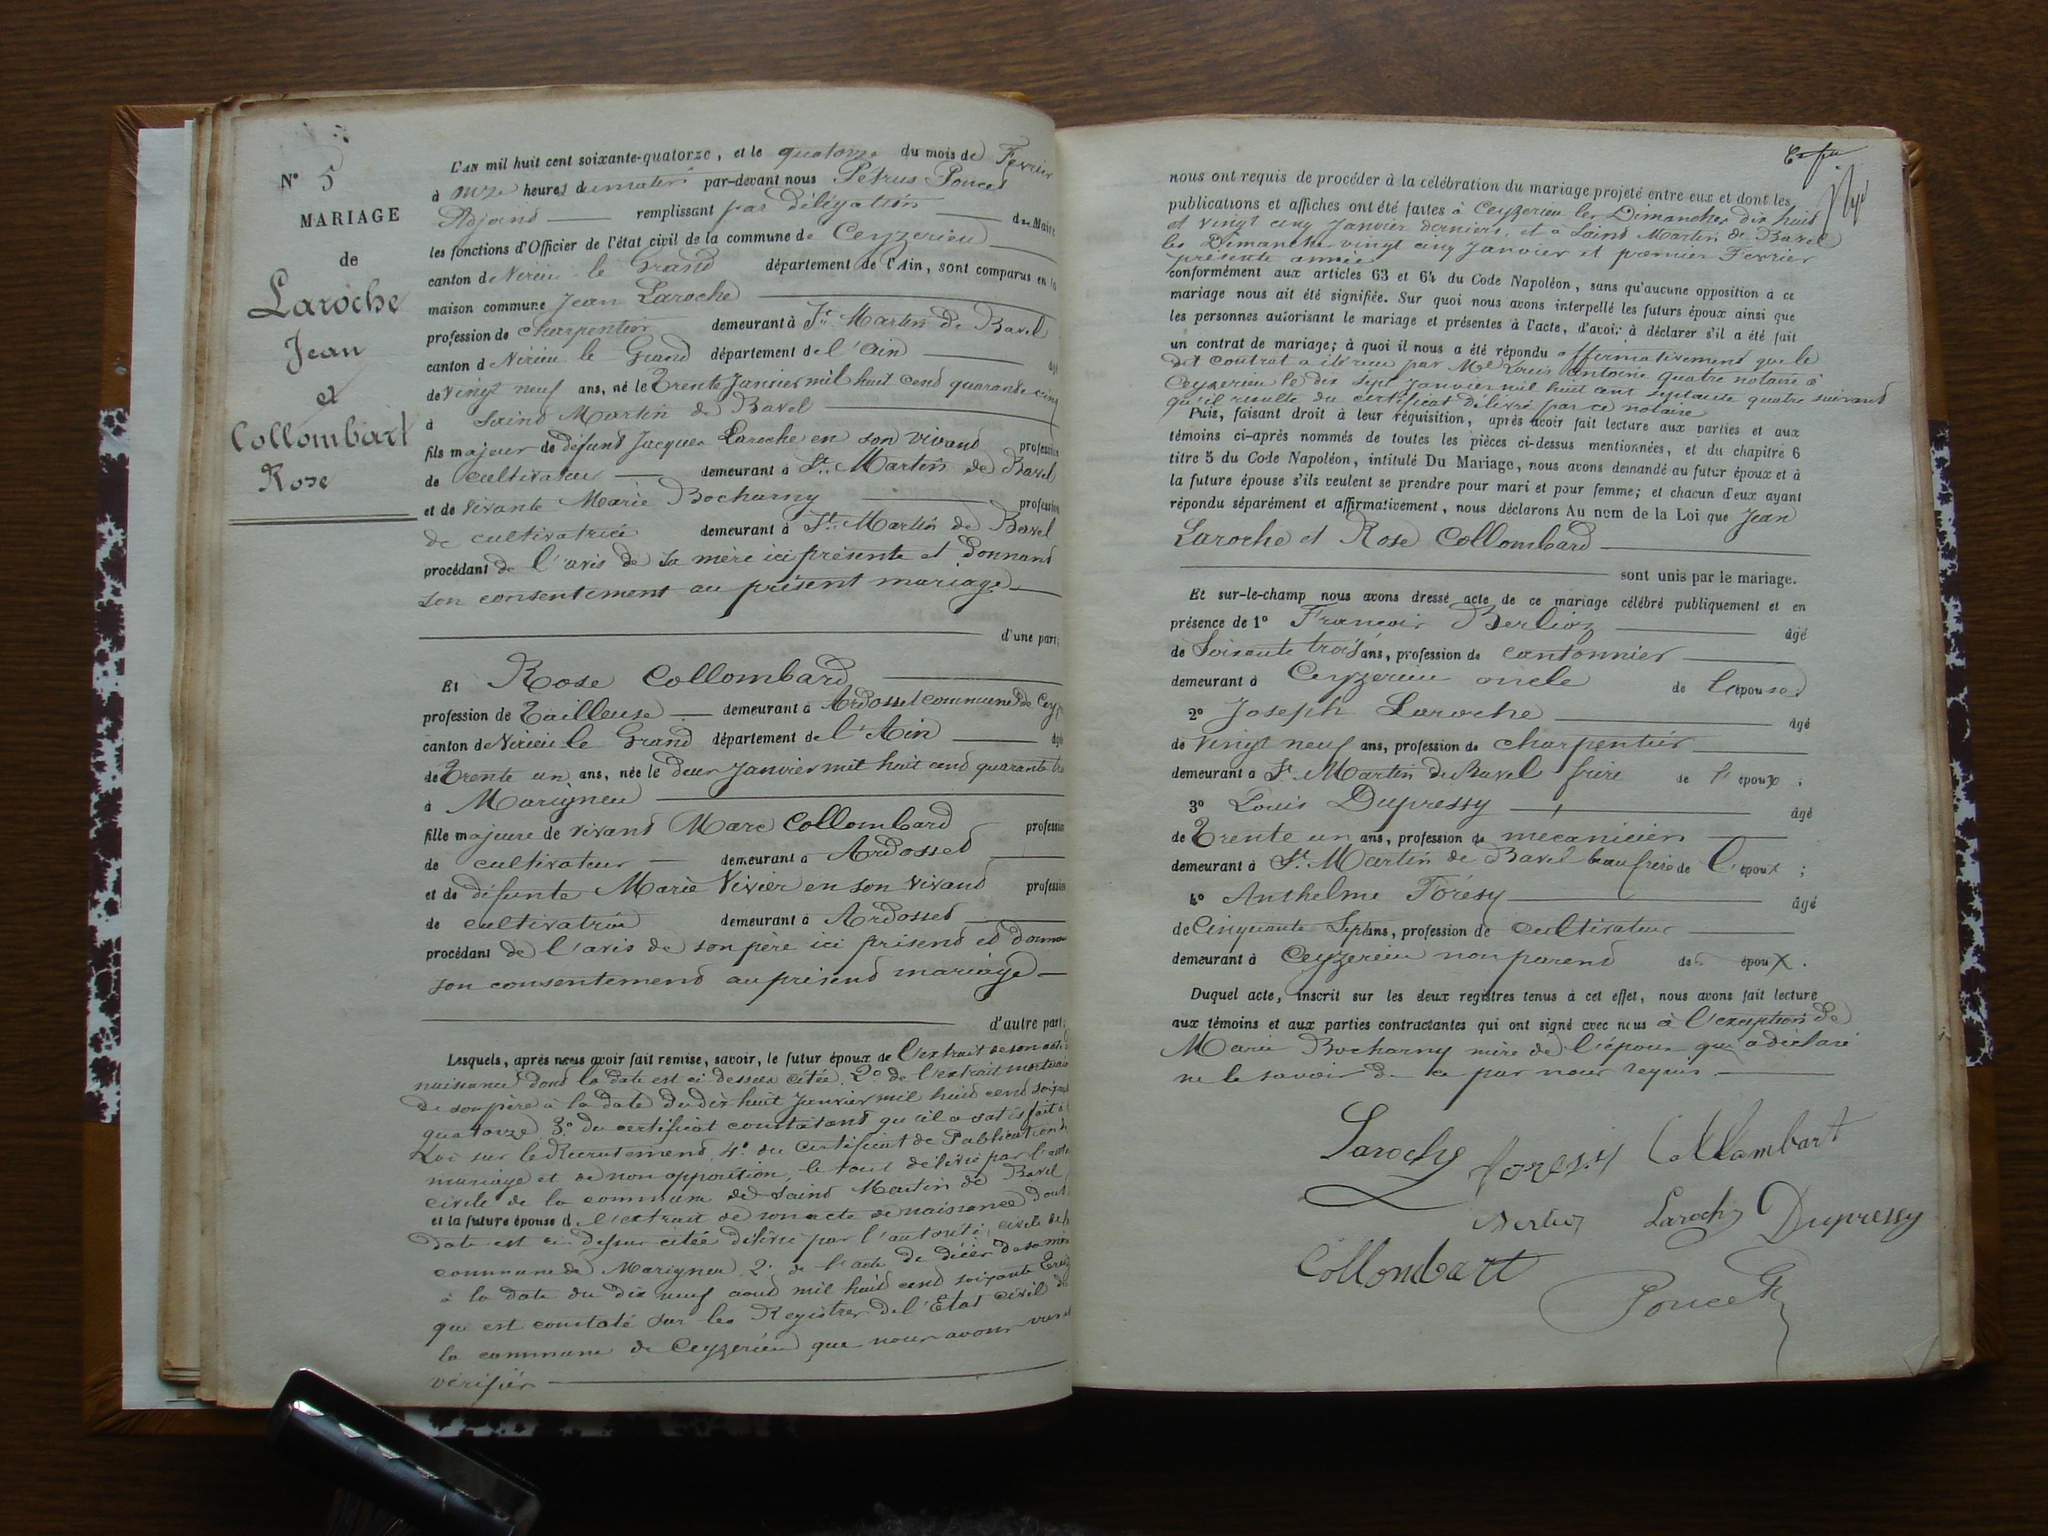 N° 5
MARIAGE
de
Laroche
Jean
et
Collombart
Rose
L'AN mil huit cent soixante-quatorze, et le quatorze du mois de Fevrier
à onze heures du matin par-devant nous Petrus Poncet
Adjoint remplissant par délégation du Maire
les fonctions d'Officier de l'état civil de la commune de Ceyzerieu
canton de Virieu le Grand département de l'Ain, sont comparus en la
maison commune Jean Laroche
profession de charpentier demeurant à St Martin de Bavel
canton d Virieu le Grand département de l'Ain
de Vingt neuf ans, né le Trente Janvier mil huit cend quarante cinq
à Saind Martin de Bavel
fils majeur de défund Jacques Laroche en son vivand profession
de cultivateur demeurant à St Martin de Bavel
et de vivante Marie Bocharny profession
de cultivatrice demeurant à St Martin de Bavel
procédant de l'avis de sa mère ici présente et donnand
son consentement au présent mariage
d'une part;
Et Rose Collombard
profession de Tailleuse demeurant à Ardosset commune de Ceyz
canton de Virieu le Grand département de l'Ain âgé
de Trente un ans, née le deux Janvier mil huit cend quarante
à Marigneu
fille majeure de vivand Marc Collombard profession
de cultivateur demeurant à Ardossed
et de défunte Marie Vivier en son vivand profession
de cultivatrice demeurant à Ardossed
procédant de l'avis de son père ici présend et donnan
son consentemend au présend mariage
d'autre part;
Lesquels, après nous avoir fait remise, savoir, le futur époux de l'extrait de son acte
naissance dond la date est ci dessus citée 2° de l'extrait mortuai
de son père à la date du dix huit Janvier mil huid cend soixan
quatorze 3° du certificat constatand qu'il a satisfait à
Loi sur le Recrutemend 4° du Certificat de Publication d
mariage et de non opposition, le tout délivré par l'auto
civile de la commune de Saind Martin de Bavel
et la future épouse d l'extrait de son acte de naissance dont
date est ci dessus citée délivré par l'autorité civile de la
commune de Marigneu 2° de l'acte de décès de sa mère
à la date du dix neuf aoud mil huid cend soixante
qui est constaté sur les Registres de l'Etat civil de
la commune de Ceyzerieu que nous avons vus et
vérifiés
nous ont requis de procéder à la célébration du mariage projeté entre eux et dont les
publications et affiches ont été faites à Ceyzerieu les Dimanches dix huit
et vingt cinq Janvier derniers et à Saind Martin de Bavel
les Dimanches vingt cinq Janvier et premier Fevrier
présente année
conformément aux articles 63 et 64 du Code Napoléon, sans qu'aucune opposition à ce
mariage nous ait été signifiée. Sur quoi nous avons interpellé les futurs époux ainsi que
les personnes autorisant le mariage et présentes à l'acte, d'avoir à déclarer s'il a été fait
un contrat de mariage; à quoi il nous a été répondu affirmativemend que le
dit contrat a été reçu par Me Louis Antoine quatre notaire à
Ceyzerieu le dix sept Janvier mil huit cent septante quatre suivand
qu'il resulte du certificat délivré par ce notaire
Puis, faisant droit à leur réquisition, après avoir fait lecture aux parties et aux
témoins ci-après nommés de toutes les pièces ci-dessus mentionnées, et du chapitre 6
titre 5 du Code Napoléon, intitulé Du Mariage, nous avons demandé au futur époux et à
la future épouse s'ils veulent se prendre pour mari et pour femme; et chacun d'eux ayant
répondu séparément et affirmativement, nous déclarons Au nom de la Loi que Jean
Laroche et Rose Collombard
sont unis par le mariage.
Et sur-le-champ nous avons dressé acte de ce mariage célébré publiquement et en
présence de 1° Francois Berlioz âgé
de Soixante trois ans, profession de cantonnier
demeurant à Ceyzerieu oncle de l'épouse
2° Joseph Laroche âgé
de Vingt neuf ans, profession de charpentier
demeurant à St Martin de Bavel frère de l'époux;
3° Louis Dupressy âgé
de Trente un ans, profession de mécanicien
demeurant à St Martin de Bavel beau frère de l'époux;
4° Anthelme Forésy âgé
de Cinquante Sept ans, profession de cultivateur
demeurant à Ceyzerieu non parend des époux.
Duquel acte, inscrit sur les deux registres tenus à cet effet, nous avons fait lecture
aux témoins et aux parties contractantes qui ont signé avec nous à l'exception de
Marie Bocharny mère de l'époux qui a déclaré
ne le savoir de ce par nous requis
Laroche Foresy Collombart
Berlioz Laroche Dupressy
Collombart
Poncet